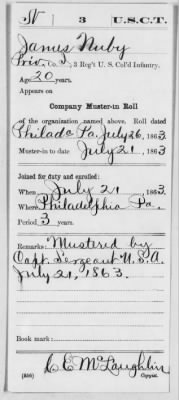 N 3 U.S.C.T.
James Nuby
Priv., Co. I, 3 Reg't U. S. Col'd Infantry.
Age 20 years.
Appears on
Company Muster-in Roll
of the organization named above. Roll dated
Philada Pa. July 26, 1863.
Muster-in to date July 21, 1863.
Joined for duty and enrolled:
When July 21, 1863.
Where Philadelphia Pa.
Period 3 years.
Remarks: Mustered by
Capt. Sergeant U.S.A.
July 21, 1863.
Book mark:
C. E. McLaughlin
(356) Copyist.